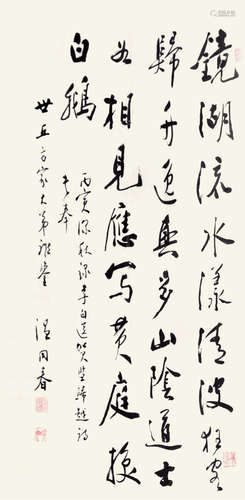 鏡湖流水漾清波狂客
歸舟逸興多山陰道士
如相見應寫黃庭換
白鵝
丙寅深秋録李白送賀監歸越詩
書奉
世丘方家大弟雅鑒
温同春